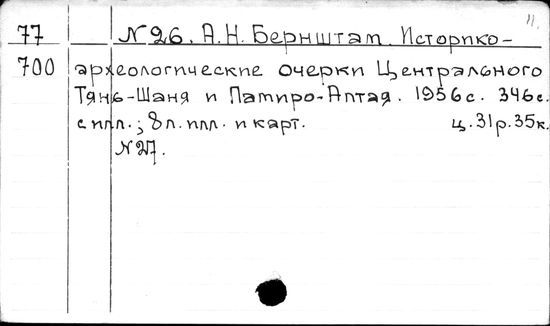 11.
77 №26. А.Н. Бернштам. Историко-
700 археологические очерки Центрального
Тянь-Шаня и Памиро-Алтая. 1956с. 346с.
с илл.; 8л. илл. и карт. ц. 31р. 35к.
№27.